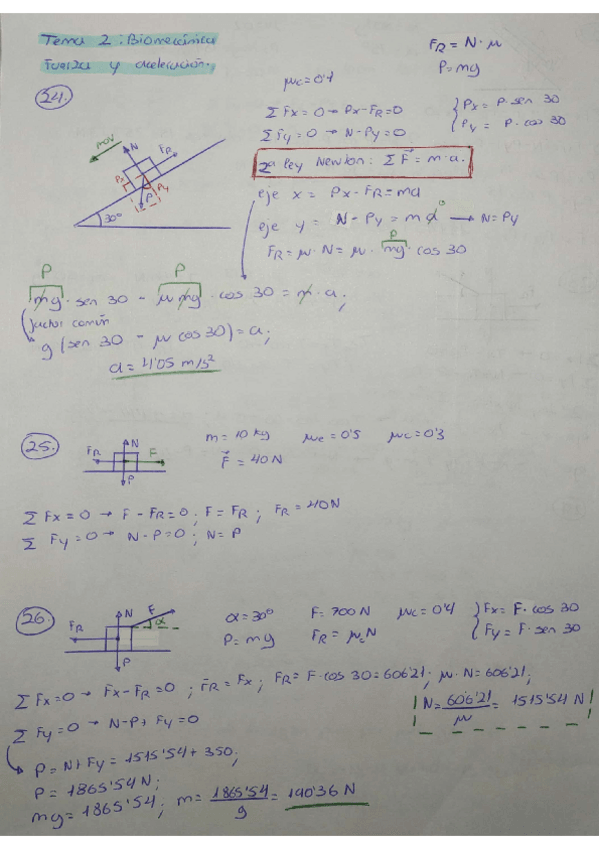 Tema 2: Biomecánica
Fuerza y aceleración.
FR = N · μ
P = mg
24.
μc = 0'1
ΣFx = 0 → Px - FR = 0
ΣFy = 0 → N - Py = 0
Px = P · sen 30
Py = P · cos 30
2ª Ley Newton: ΣF = m · a.
MOV
N
FR
Px
Py
P
30°
eje x = Px - FR = ma
eje y = N - Py = m a 0 → N = Py
P
FR = μ · N = μ · mg · cos 30
P P
mg · sen 30 - μ mg · cos 30 = m · a;
factor común
g (sen 30 - μ cos 30) = a;
a = 4'05 m/s²
25.
FR N F P
m = 10 kg μe = 0'5 μc = 0'3
F = 40 N
ΣFx = 0 → F - FR = 0; F = FR; FR = 40 N
Σ Fy = 0 → N - P = 0; N = P
26.
FR N F α P
α = 30° F = 700 N μc = 0'4
P = mg FR = μc N
Fx = F · cos 30
Fy = F · sen 30
ΣFx = 0 → Fx - FR = 0; FR = Fx; FR = F · cos 30 = 606'21; μ · N = 606'21;
N = 606'21 / μ = 1515'54 N
Σ Fy = 0 → N - P + Fy = 0
P = N + Fy = 1515'54 + 350;
P = 1865'54 N;
mg = 1865'54; m = 1865'54 / g = 190'36 N